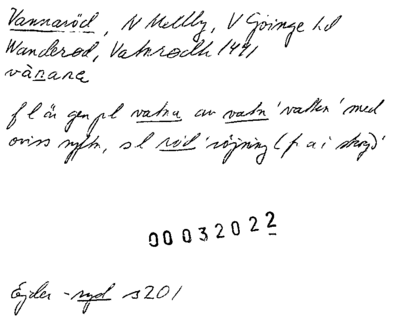 Vannaröd, N Mellby, V Göinge hd
Wanderød, Vatnrødh 1491
vànara
f l är gen pl vatna av vatn 'vatten' med
oviss syftn, s l röd 'röjning (f a i skog)'
00032022
Ejder -ryd s 201